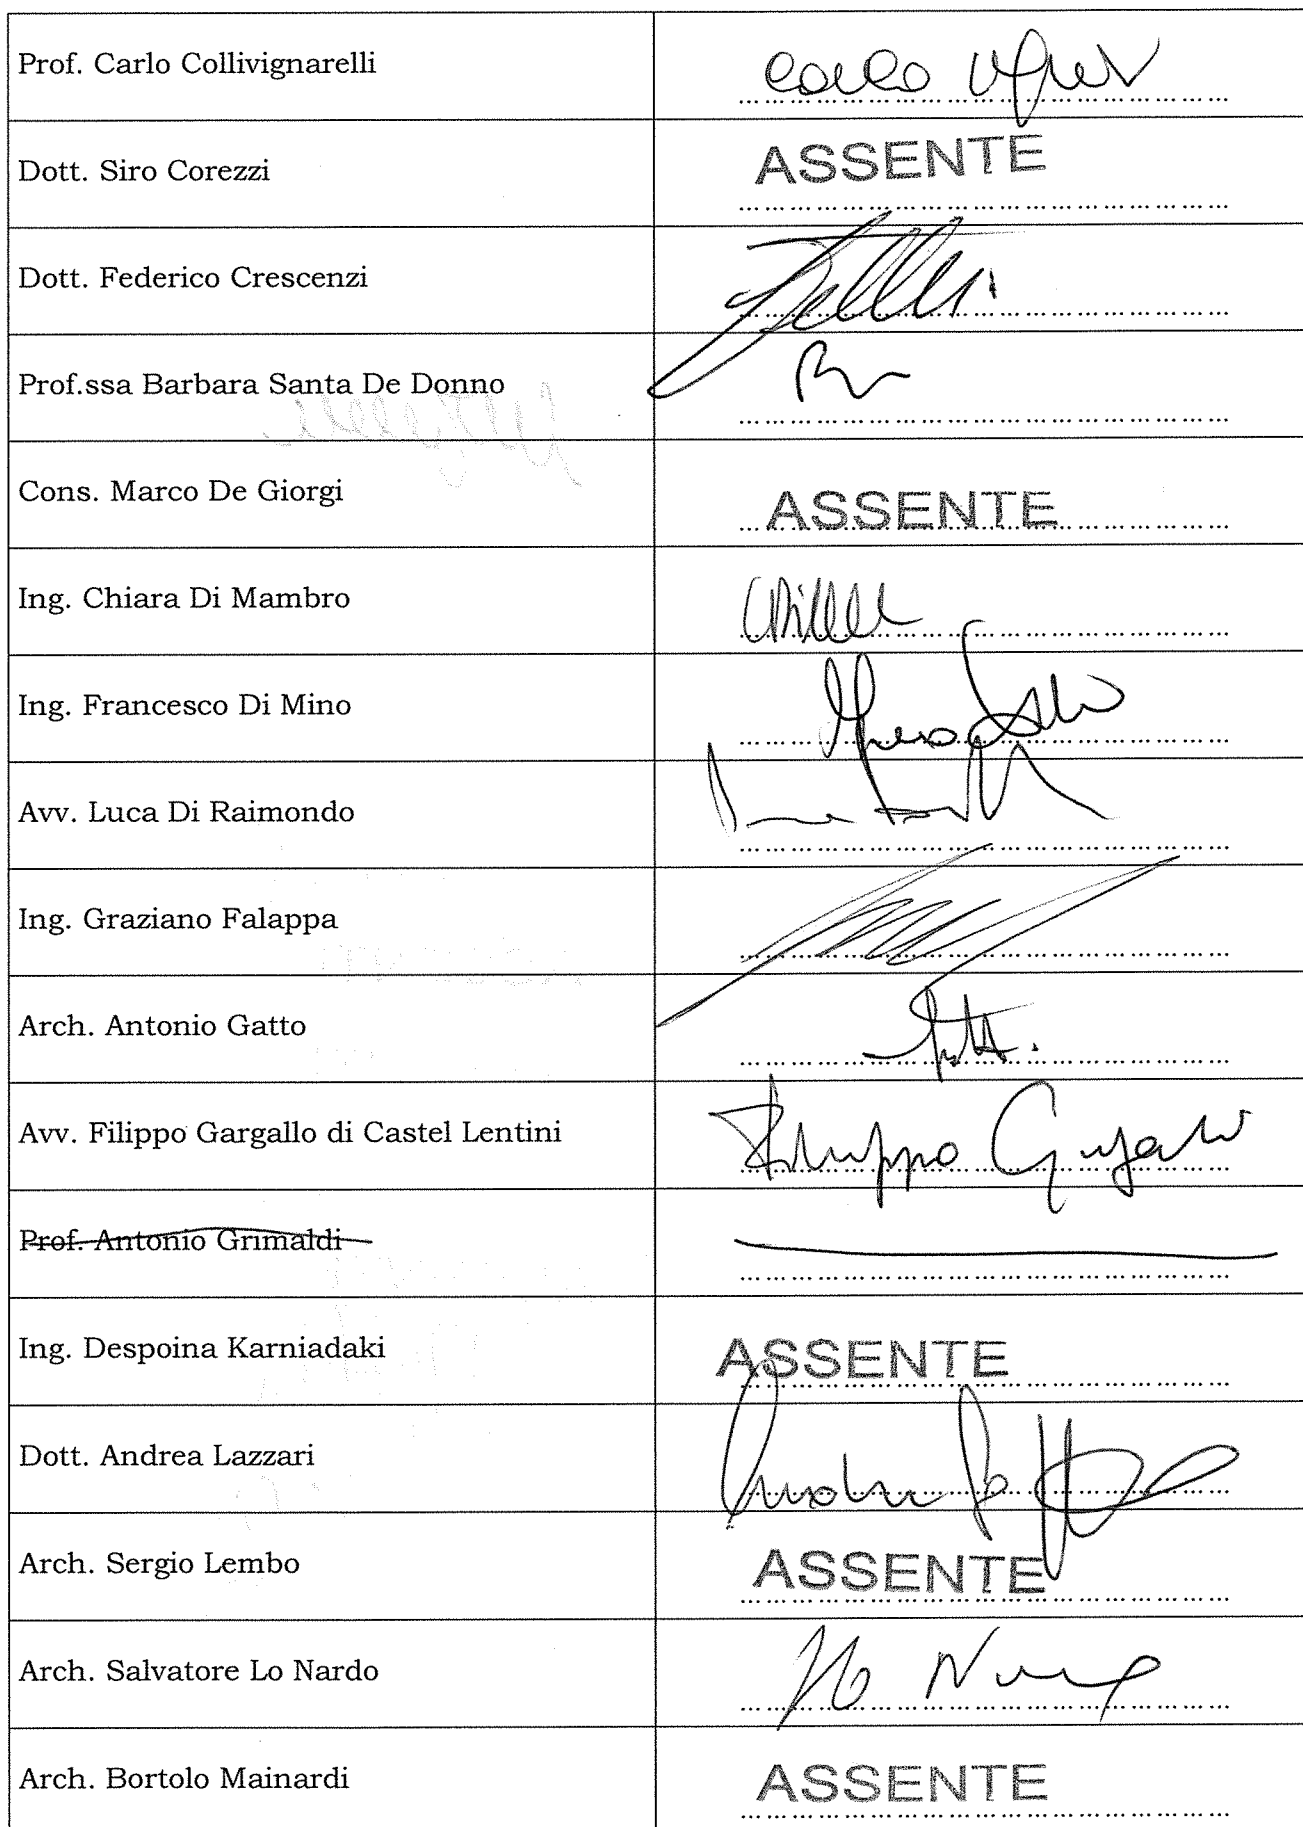 Prof. Carlo Collivignarelli
Carlo
Dott. Siro Corezzi
ASSENTE
Dott. Federico Crescenzi
Prof.ssa Barbara Santa De Donno
Cons. Marco De Giorgi
ASSENTE
Ing. Chiara Di Mambro
Ing. Francesco Di Mino
Avv. Luca Di Raimondo
Ing. Graziano Falappa
Arch. Antonio Gatto
Avv. Filippo Gargallo di Castel Lentini
Filippo Gargallo
Prof. Antonio Grimaldi
Ing. Despoina Karniadaki
ASSENTE
Dott. Andrea Lazzari
Arch. Sergio Lembo
ASSENTE
Arch. Salvatore Lo Nardo
Arch. Bortolo Mainardi
ASSENTE